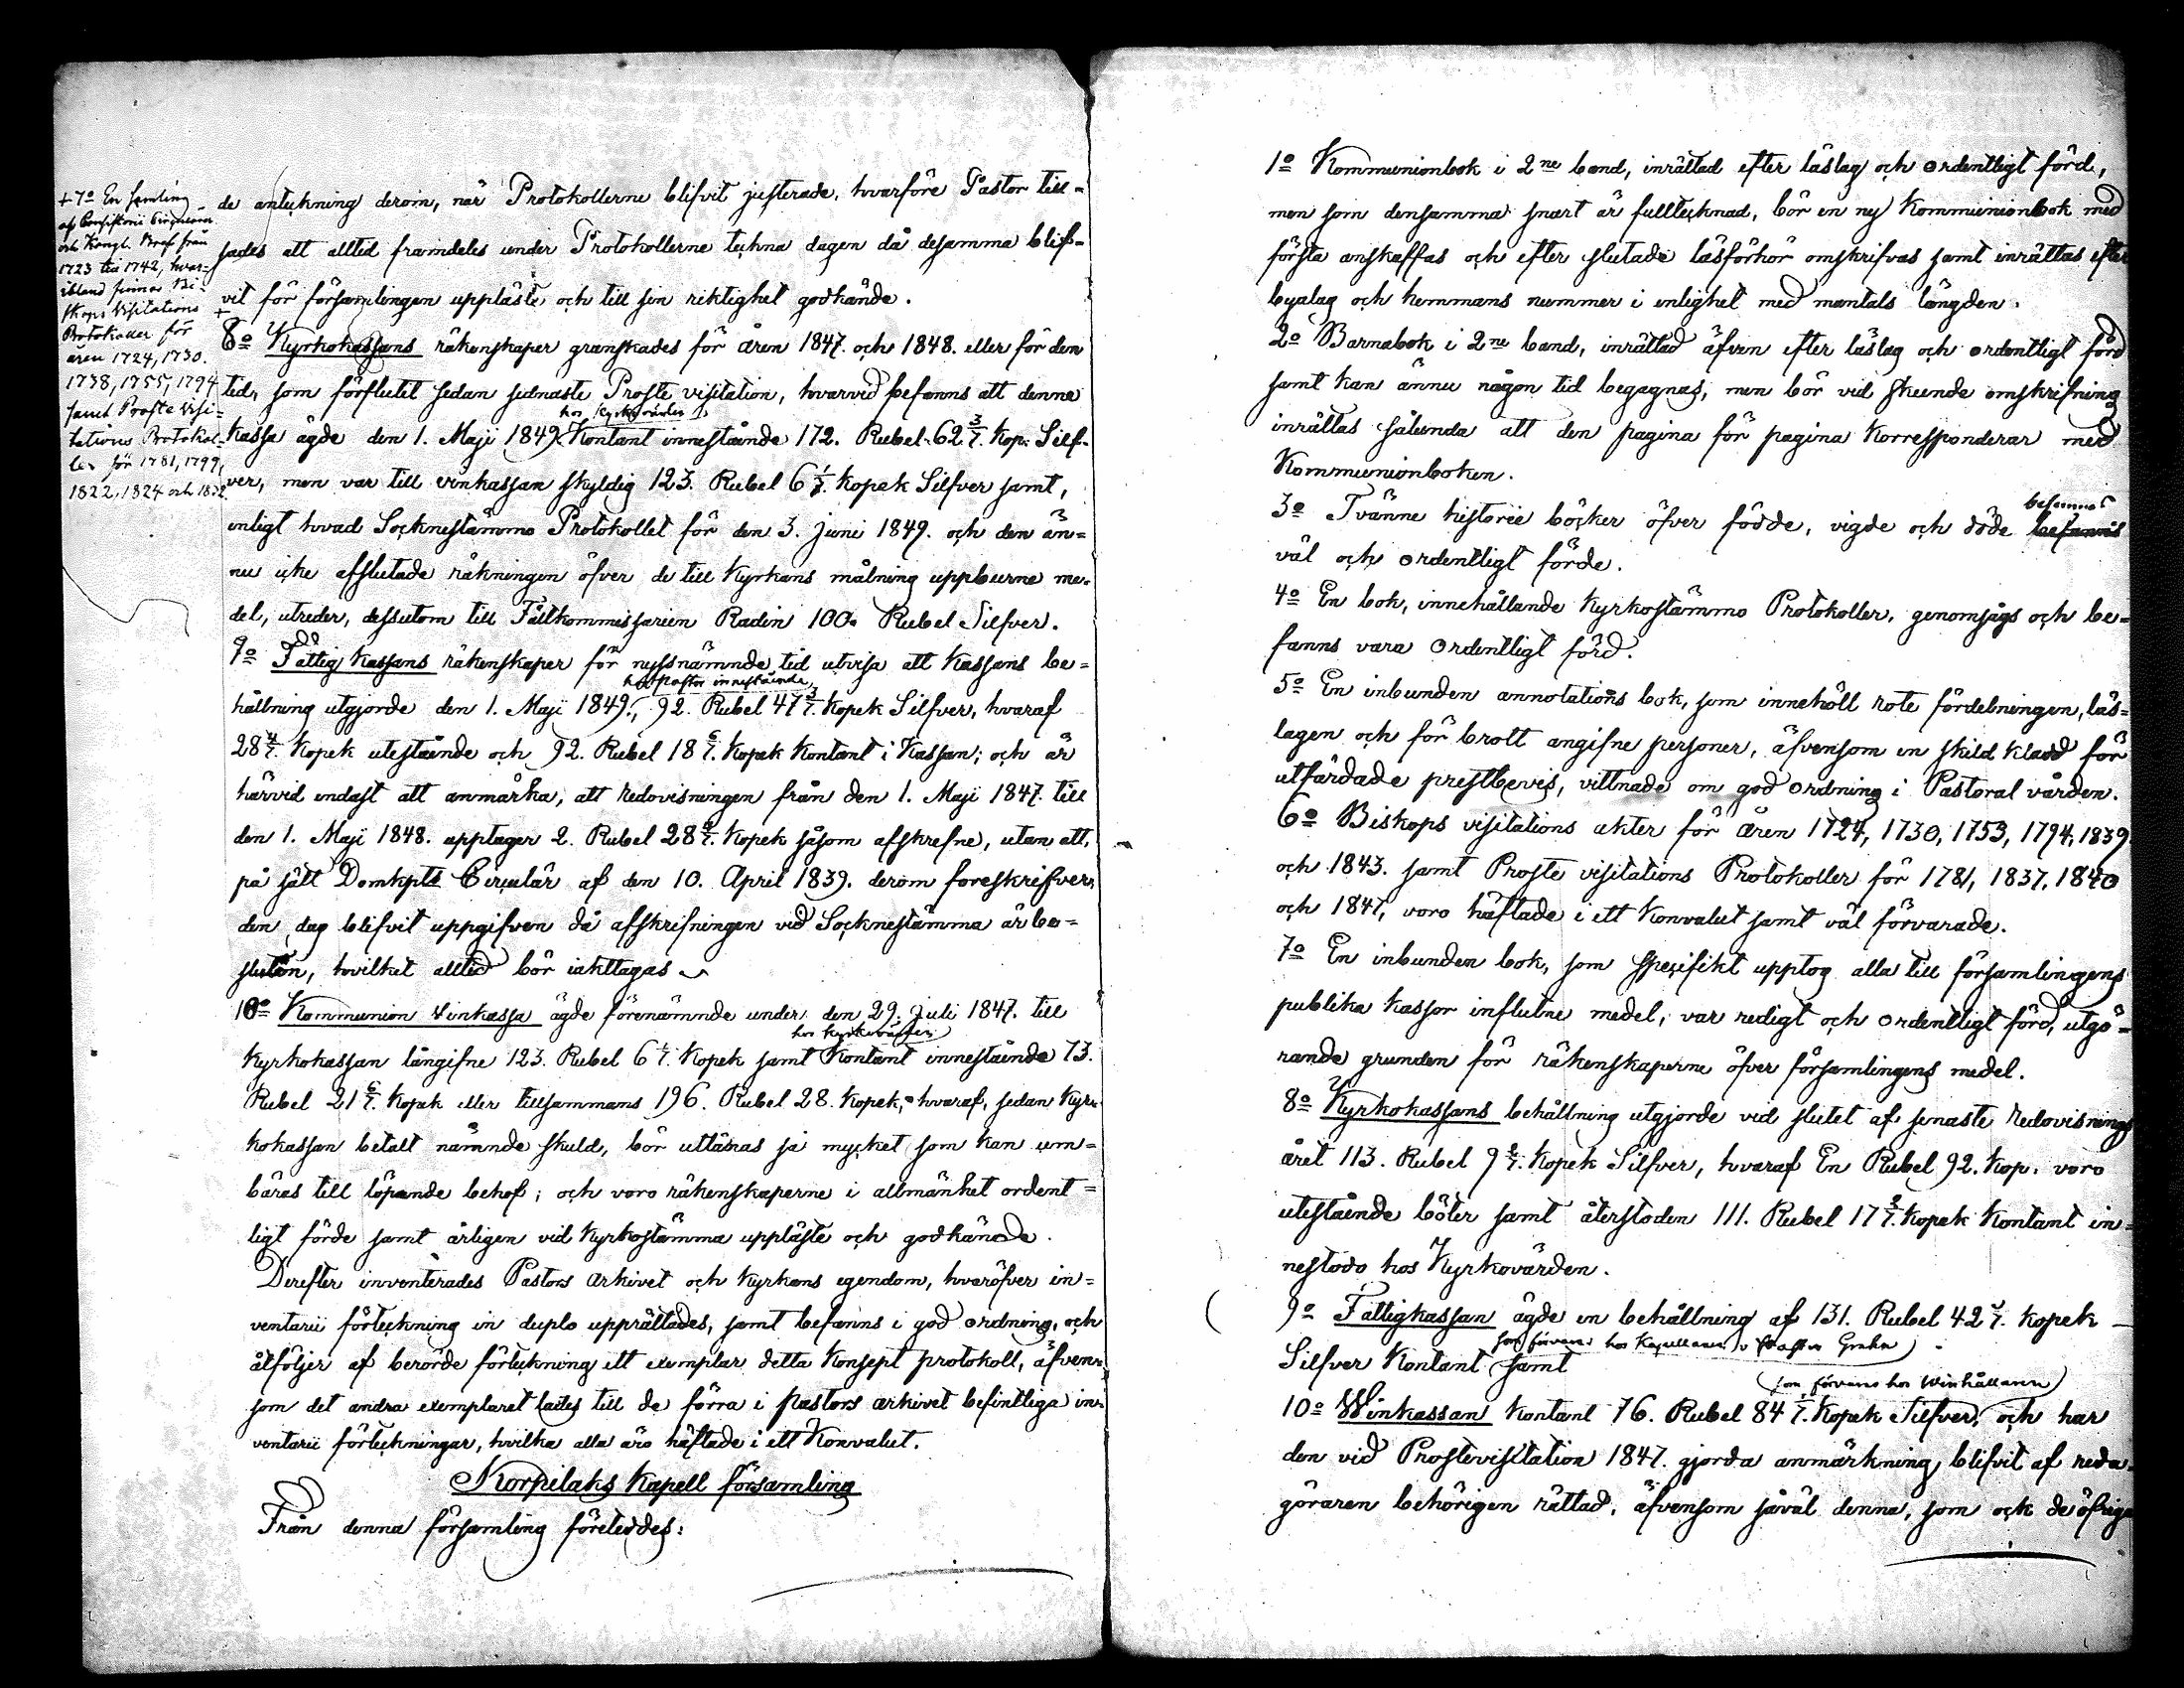 + 7o En samling
af Consistorii Circulairer
och Kongl. Bref från
1723 till 1742, hvar-
ibland finnas Bi-
skops Visitations
Protokoller för
åren 1724, 1730.
1738, 1755, 1794
samt Proste Visi-
tations Protokol-
ler för 1781, 1799,
1822, 1824 och 1832.
de anteckning derom, när Protokollerne blifvit justerade, hvarföre Pastor till-
sades att alltid framdeles under Protokollerne tekna dagen då desamma blif-
vit för församlingen uppläste och till sin riktighet godkände.
+
8o Kyrkokassans räkenskaper granskades för åren 1847. och 1848. eller för den
tid, som förflutit sedan sednaste Proste visitation, hvarvid befanns att denna
hos Kyrkovärden
kassa ägde den 1. Maji 1849 Kontant innestående 172. Rubel 62 3/7. Kop. Silf-
ver, men var till vinkassan skyldig 123. Rubel 6 1/7. Kopek Silfver samt,
enligt hvad Socknestämmo Protokollet för den 3. Juni 1849. och den än-
nu icke afslutade räkningen öfver de till Kyrkans målning uppburne me-
del, utreder, dessutom till Fältkommissarien Radin 100. Rubel Silfver.
9o Fattig Kassans räkenskaper för nyssnämnde tid utvisa att Kassans be-
hos Pastor innestående
hållning utgjorde den 1. Maji 1849., 92. Rubel 47 3/7. Kopek Silfver, hvaraf
28 4/7. Kopek utestående och 92. Rubel 18 6/7. Kopek Kontant i Kassan; och är
härvid endast att anmärka, att redovisningen från den 1. Maji 1847. till
den 1. Maji 1848. upptager 2. Rubel 28 4/7. Kopek såsom afskrefne, utan att,
på sätt Domkpts Circulär af den 10. April 1839. derom föreskrifver,
den dag blifvit uppgifven då afskrifningen vid Socknestämma är be-
sluten, hvilket alltid bör iakttagas
10o Kommunion Vinkassa ägde förenämnde under den 29. Juli 1847. till
hos kyrkovärden
Kyrkokassan långifne 123. Rubel 6 1/7. Kopek samt Kontant innestående 73.
Rubel 21 6/7. Kopek eller tillsammans 196. Rubel 28. Kopek, hvaraf, sedan Kyr-
kokassan betalt nämnde skuld, bör utlånas så mycket som kan um-
bäras till löpande behof; och voro räkenskaperne i allmänhet ordent-
ligt förde samt årligen vid Kyrkostämma uppläste och godkände.
Derefter inventerades Pastors Arkivet och Kyrkans egendom, hvaröfver in-
ventarii förteckning in duplo upprättades, samt befanns i god ordning, och
åtföljer af berörde förteckning ett exemplar detta Konsept protokoll, äfven-
som det andra exemplaret lades till de förra i Pastors arkivet befintliga in-
ventarii förteckningar, hvilka alla äro häftade i ett Konvalut.
Korpilaks Kapell församling
Från denna församling företeddes:
1o Kommunionbok i 2ne band, inrättad efter läslag och ordentligt förd,
men som densamma snart är fulltecknad, bör en ny Kommunionbok med
första anskaffas och efter slutade läsförhör omskrifvas samt inrättas efter
byalag och hemmans nummer i enlighet med mantals längden.
2o Barnabok i 2ne band, inrättad äfven efter läslag och ordentligt förd
samt kan ännu någon tid begagnas, men bör vid skeende omskrifning
inrättas sålunda att den pagina för pagina Korresponderar med
Kommunionboken.
befunnos
3o Tvänne historie böcker öfver födde, vigde och döde befanns
väl och ordentligt förde.
4o En bok, innehållande Kyrkostämmo Protokoller, genomsågs och be-
fanns vara ordentligt förd.
5o En inbunden annotations bok, som innehöll rote fördelningen, läs-
lagen och för brott angifne personer, äfvensom en skild kladd för
utfärdade prestbevis, vittnade om god ordning i Pastoral vården.
6o Biskops visitations akter för åren 1724, 1730, 1753, 1794, 1839.
och 1843. samt Proste visitations Protokoller för 1781, 1837, 1840
och 1847, voro häftade i ett Konvalut samt väl förvarade.
7o En inbunden bok, som specifikt upptog alla till församlingens
publika kassor influtne medel, var redigt och ordentligt förd, utgö-
rande grunden för räkenskaperne öfver församlingens medel.
8o Kyrkokassans behållning utgjorde vid slutet af senaste redovisnings
året 113. Rubel 9 6/7. Kopek Silfver, hvaraf En Rubel 92. Kop. voro
utestående böter samt återstoden 111. Rubel 17 3/7. Kopek Kontant in-
nestodo hos Kyrkovärden.
9o Fattigkassan ägde en behållning af 131. Rubel 42 /7. Kopek
som förvaras hos Kapellanen v Pastor Grahn
Silfver Kontant samt
(som förvaras hos Winhållaren)
10o Winkassan Kontant 76. Rubel 84 1/7. Kopek Silfver, och har
den vid Prostevisitation 1847. gjorda anmärkning blifvit af redo-
göraren behörigen rättad, äfvensom såväl denna, som ock de öfriga